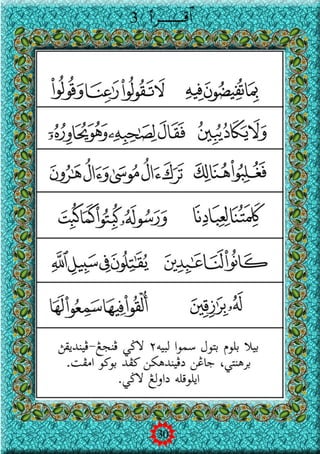 اَقـــرأ 3
بِمَا تُفِيضُونَ فِيهِ لَا تَقُولُوا۟ رَٰعِنَا وَقُولُوا۟
وَلَا يَكَادُ يُبِينُ فَقَالَ لِصَٰحِبِهِۦ وَهُوَ يُحَاوِرُهُۥٓ
فَغُلِبُوا۟ هُنَالِكَ تَرَكَ ءَالُ مُوسَىٰ وَءَالُ هَٰرُونَ
كَلِمَتُنَا لِعِبَادِنَا وَرَسُولَهُۥ كُبِتُوا۟ كَمَا كُبِتَ
كَانُوا۟ لَنَا عَٰبِدِينَ يُقَٰتِلُونَ فِى سَبِيلِ ٱللَّهِ
لَهُۥ بِرَٰزِقِينَ أُلْقُوا۟ فِيهَا سَمِعُوا۟ لَهَا
بيلا بلوم بتول سموا لبيه٢ لاݢي ڤنجڠ-ڤينديقن
برهنتي، جاڠن دڤيندهكن كڤد بوكو امڤت.
ايلوقله داولڠ لاݢي.
30